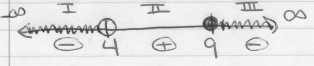 I II III
∞ ∞
⊖ 4 ⊕ 9 ⊖